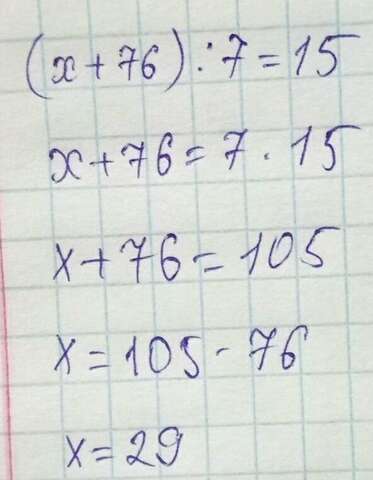 (x+76):7=15
x+76=7·15
x+76=105
x=105-76
x=29